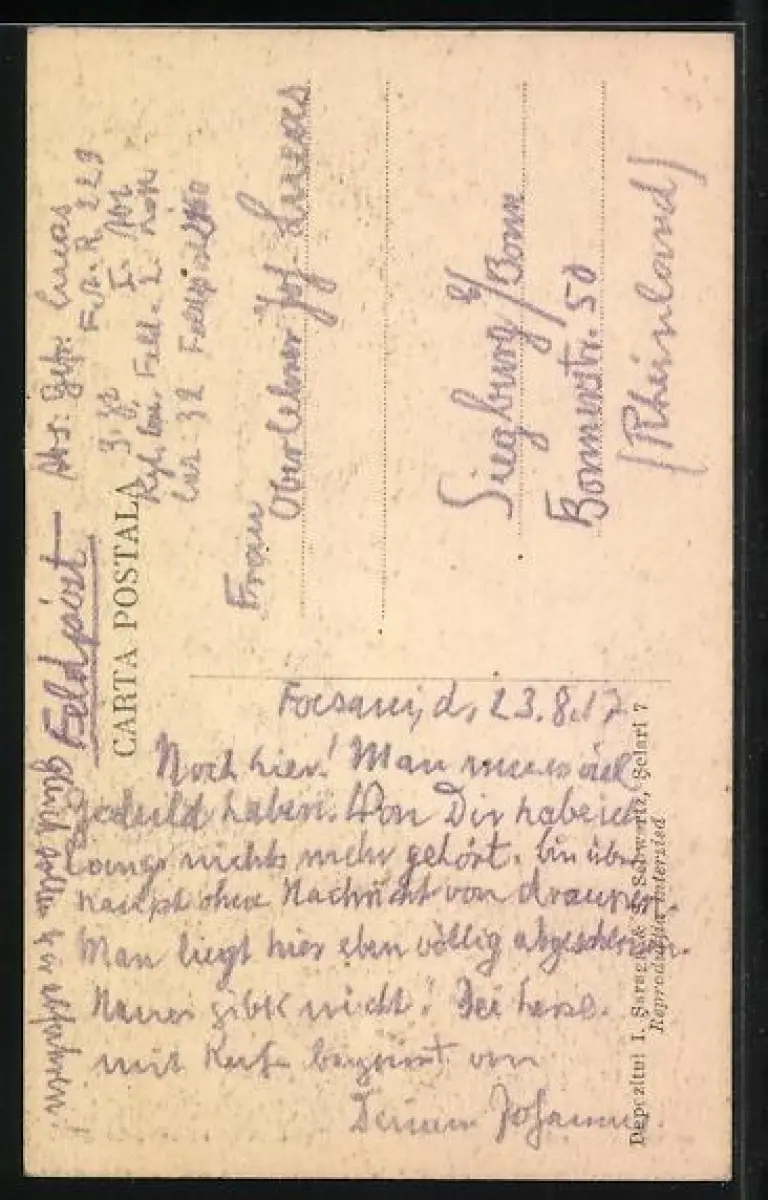 Feldpost
CARTA POSTALA
Abs: Gefr. Lucas
F.A.R. 229
Kgl. bay. Feld
32 Feldpost
Frau
Oberlehrer Jos. Lucas
Siegburg b/Bonn
Bonnerstr. 50
(Rheinland)
Focsani, d. 23.8.17
Noch hier! Man muss viel
Geduld haben. Von Dir habe ich
lange nichts mehr gehört. bin über
haupt ohne Nachricht von draussen.
Man liegt hier eben völlig abgeschieden.
Neues gibt nicht! Sei herzl.
mit gegrüsst von
Deinem Johannes.
Depozitul I. Saraga & S. Schwartz, Selari 7
Reproducția interzisă